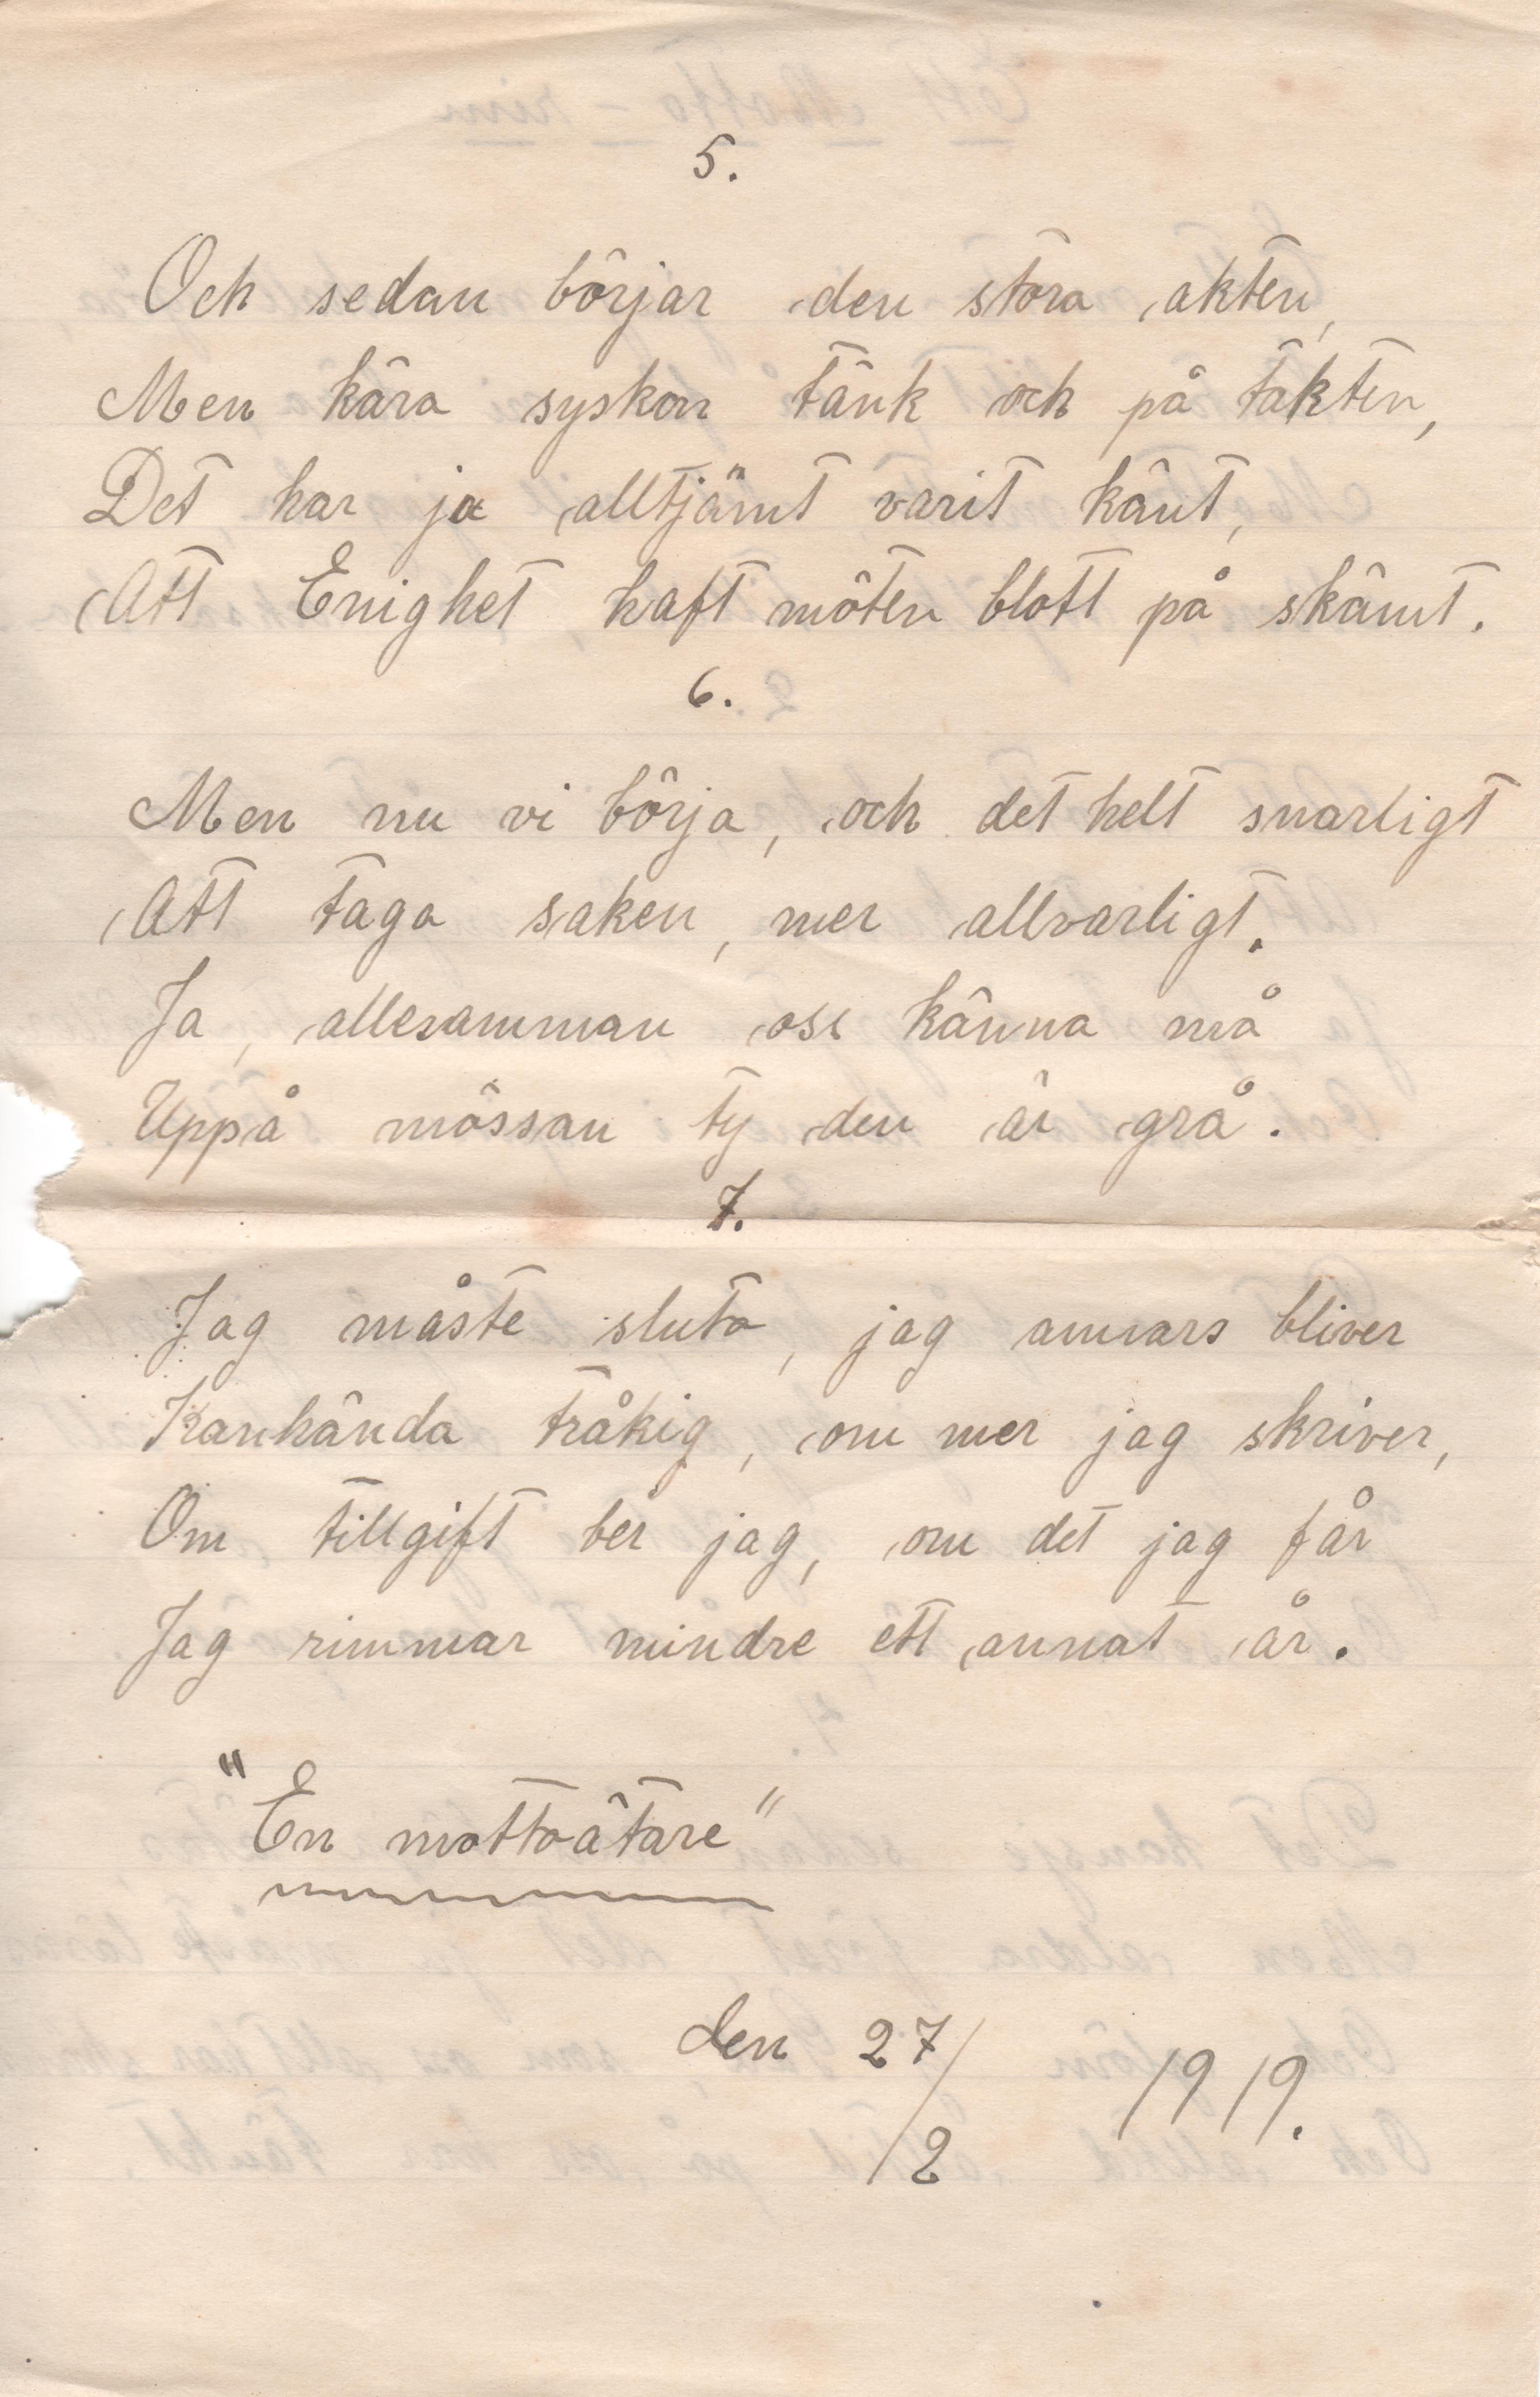 5.
Och sedan börjar den stora akten,
Men kära syskon tänk och på takten,
Det har ja alltjämt varit känt,
Att Enighet, haft möten blott på skämt.
6.
Men nu vi börja, och det helt snarligt
Att taga saken, mer allvarligt.
Ja, allesamman oss känna må
Uppå mössan ty den är grå.
7.
Jag måste sluta, jag annars bliver
Kanhända tråkig, om mer jag skriver,
Om tillgift ber jag, om det jag får
Jag rimmar mindre ett annat år.
"En mottoätare"
den 27/2 1919.